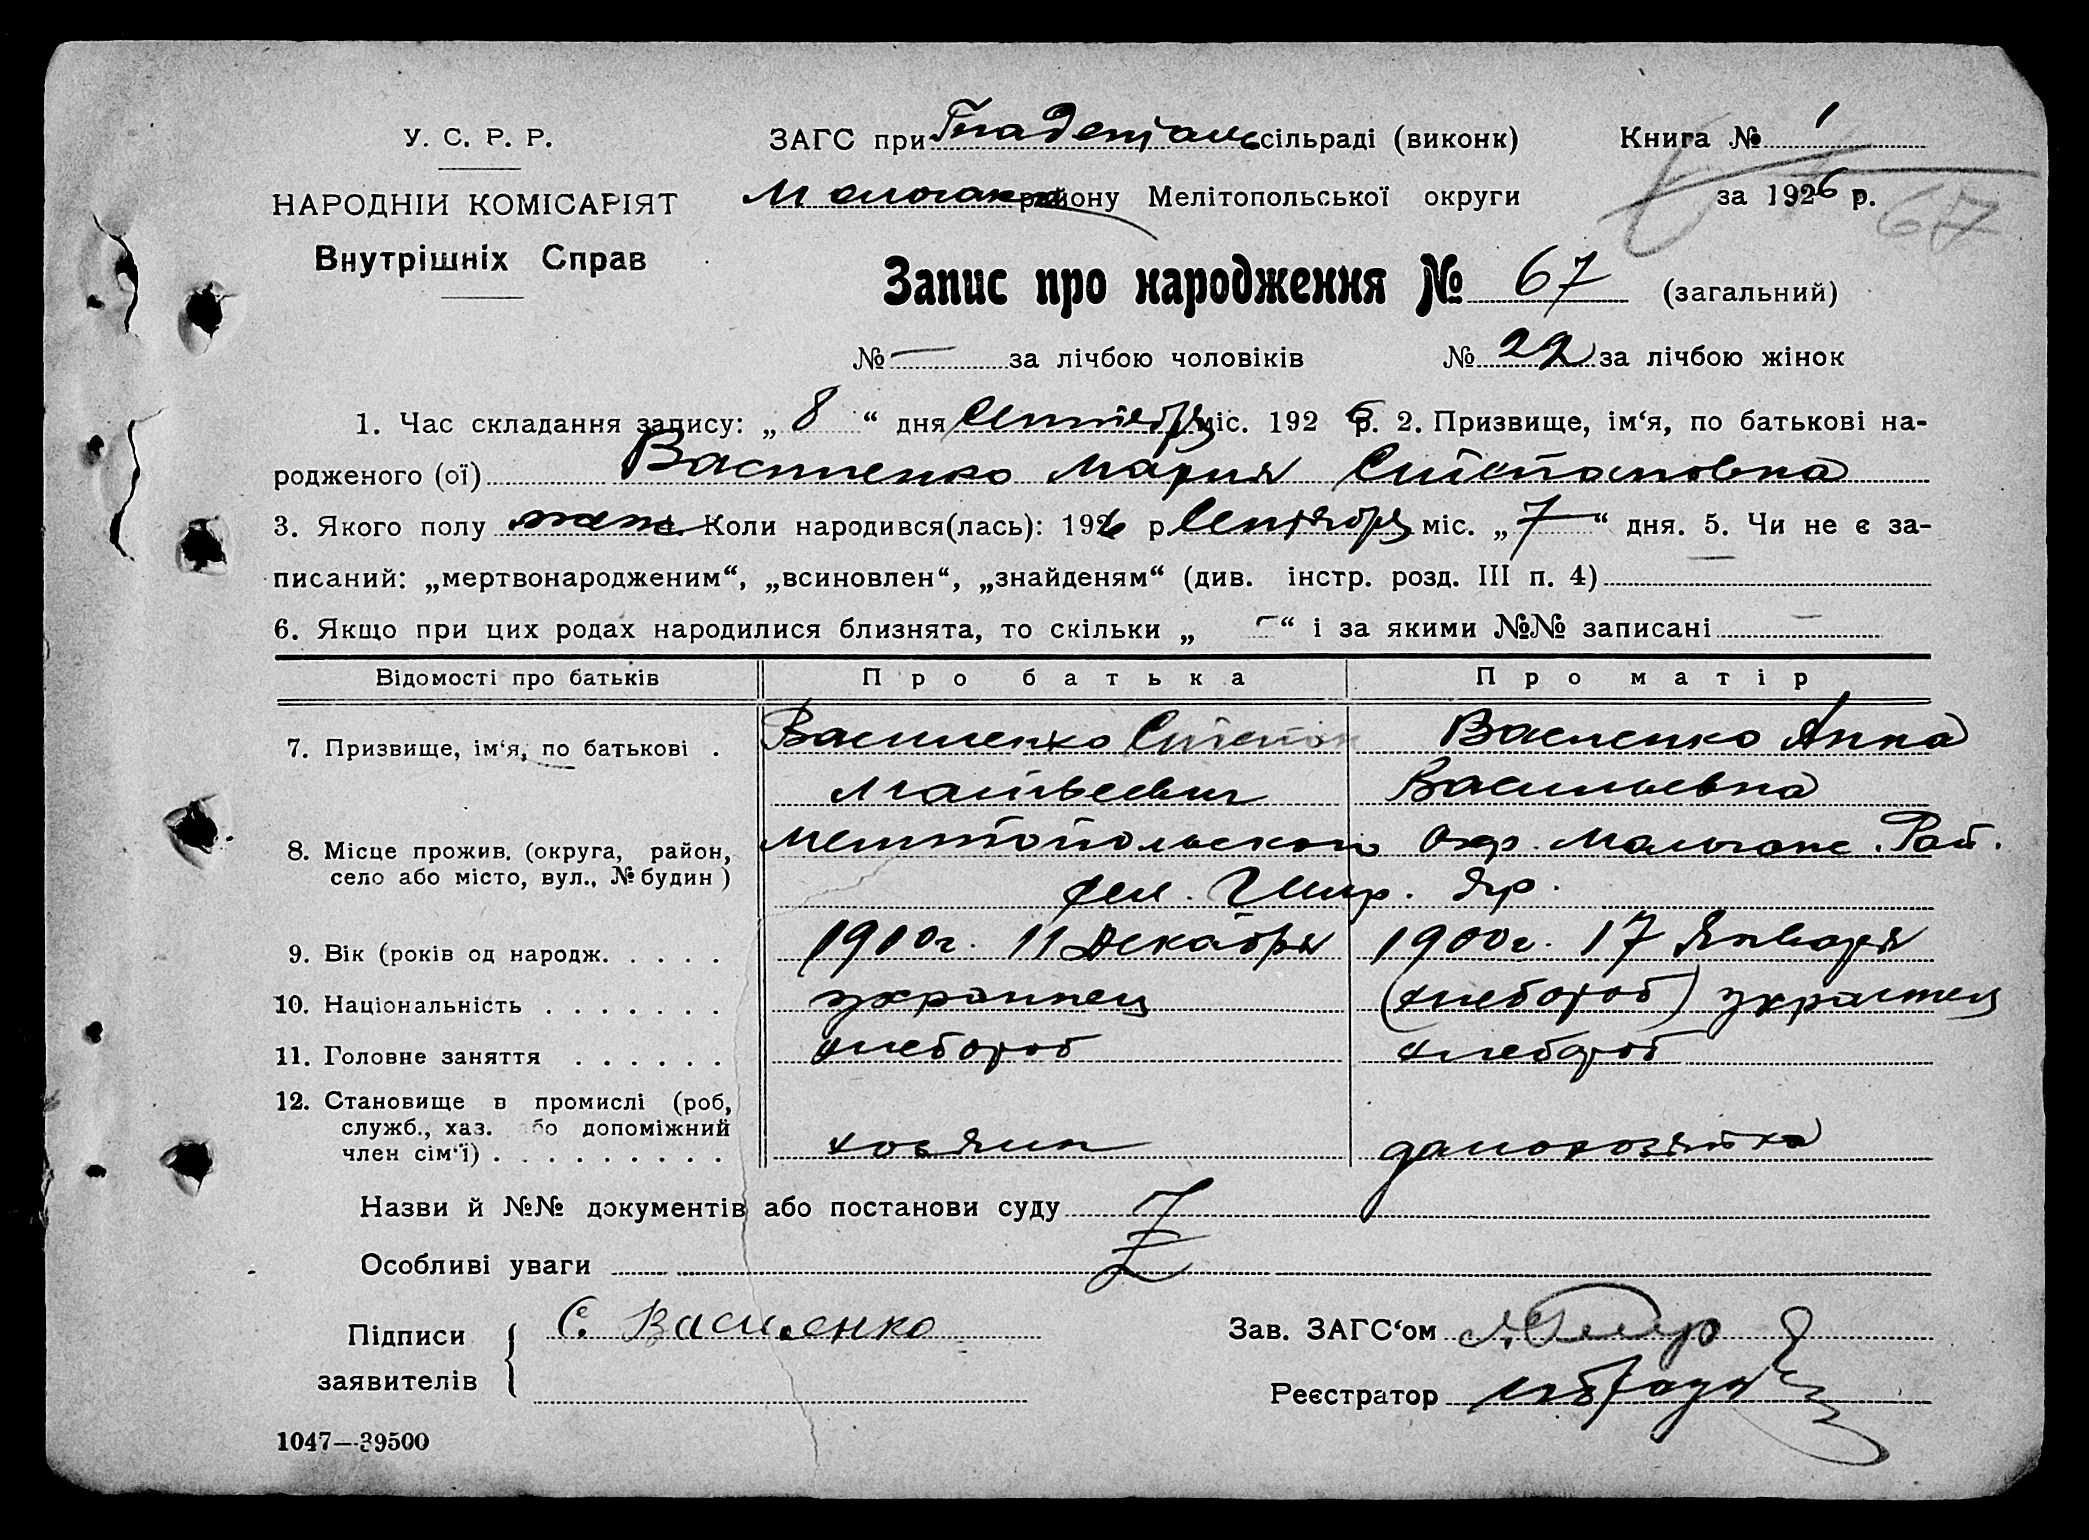 У. С. Р. Р.
НАРОДНІЙ КОМІСАРІЯТ
Внутрішніх Справ
ЗАГС при сільраді (виконк)
району Мелітопольської округи
Книга № 1
за 1926 р.
67
Запис про народження № 67 (загальний)
№ — за лічбою чоловіків № 22 за лічбою жінок
1. Час складання запису: „ 8 “ дня Сентября міс. 1926 р. 2. Призвище, ім‘я, по батькові на-
родженого (ої) Василенко Мария Степановна
3. Якого полу Коли народився(лась): 1926 р Сентября міс. „ 7 “ дня. 5. Чи не є за-
писаний: „мертвонародженим“, „всиновлен“, „знайденям“ (див. інстр. розд. III п. 4) —
6. Якщо при цих родах народилися близнята, то скільки „ — “ і за якими №№ записані —
Відомості про батьків Про батька Про матір
7. Призвище, ім‘я, по батькові . Василенко Степан Василенко Анна
Матвеевич Васильевна
8. Місце прожив. (округа, район, Мелитопольской Окр. Рай.
село або місто, вул., № будин) сел. Яр.
9. Вік (років од народж. . . . . 1910г. 11 Декабря 1900г. 17 Января
10. Національність . . . . . . . украинец (хлебороб) украинец
11. Головне заняття . . . . . . хлебороб хлебороб
12. Становище в промислі (роб,
служб., хаз. або допоміжний
член сім‘ї) . . . . . . . . . хозяин домохозяйка
Назви й №№ документів або постанови суду
Особливі уваги
Підписи С. Василенко Зав. ЗАГС‘ом
заявителів Реєстратор
1047—39500